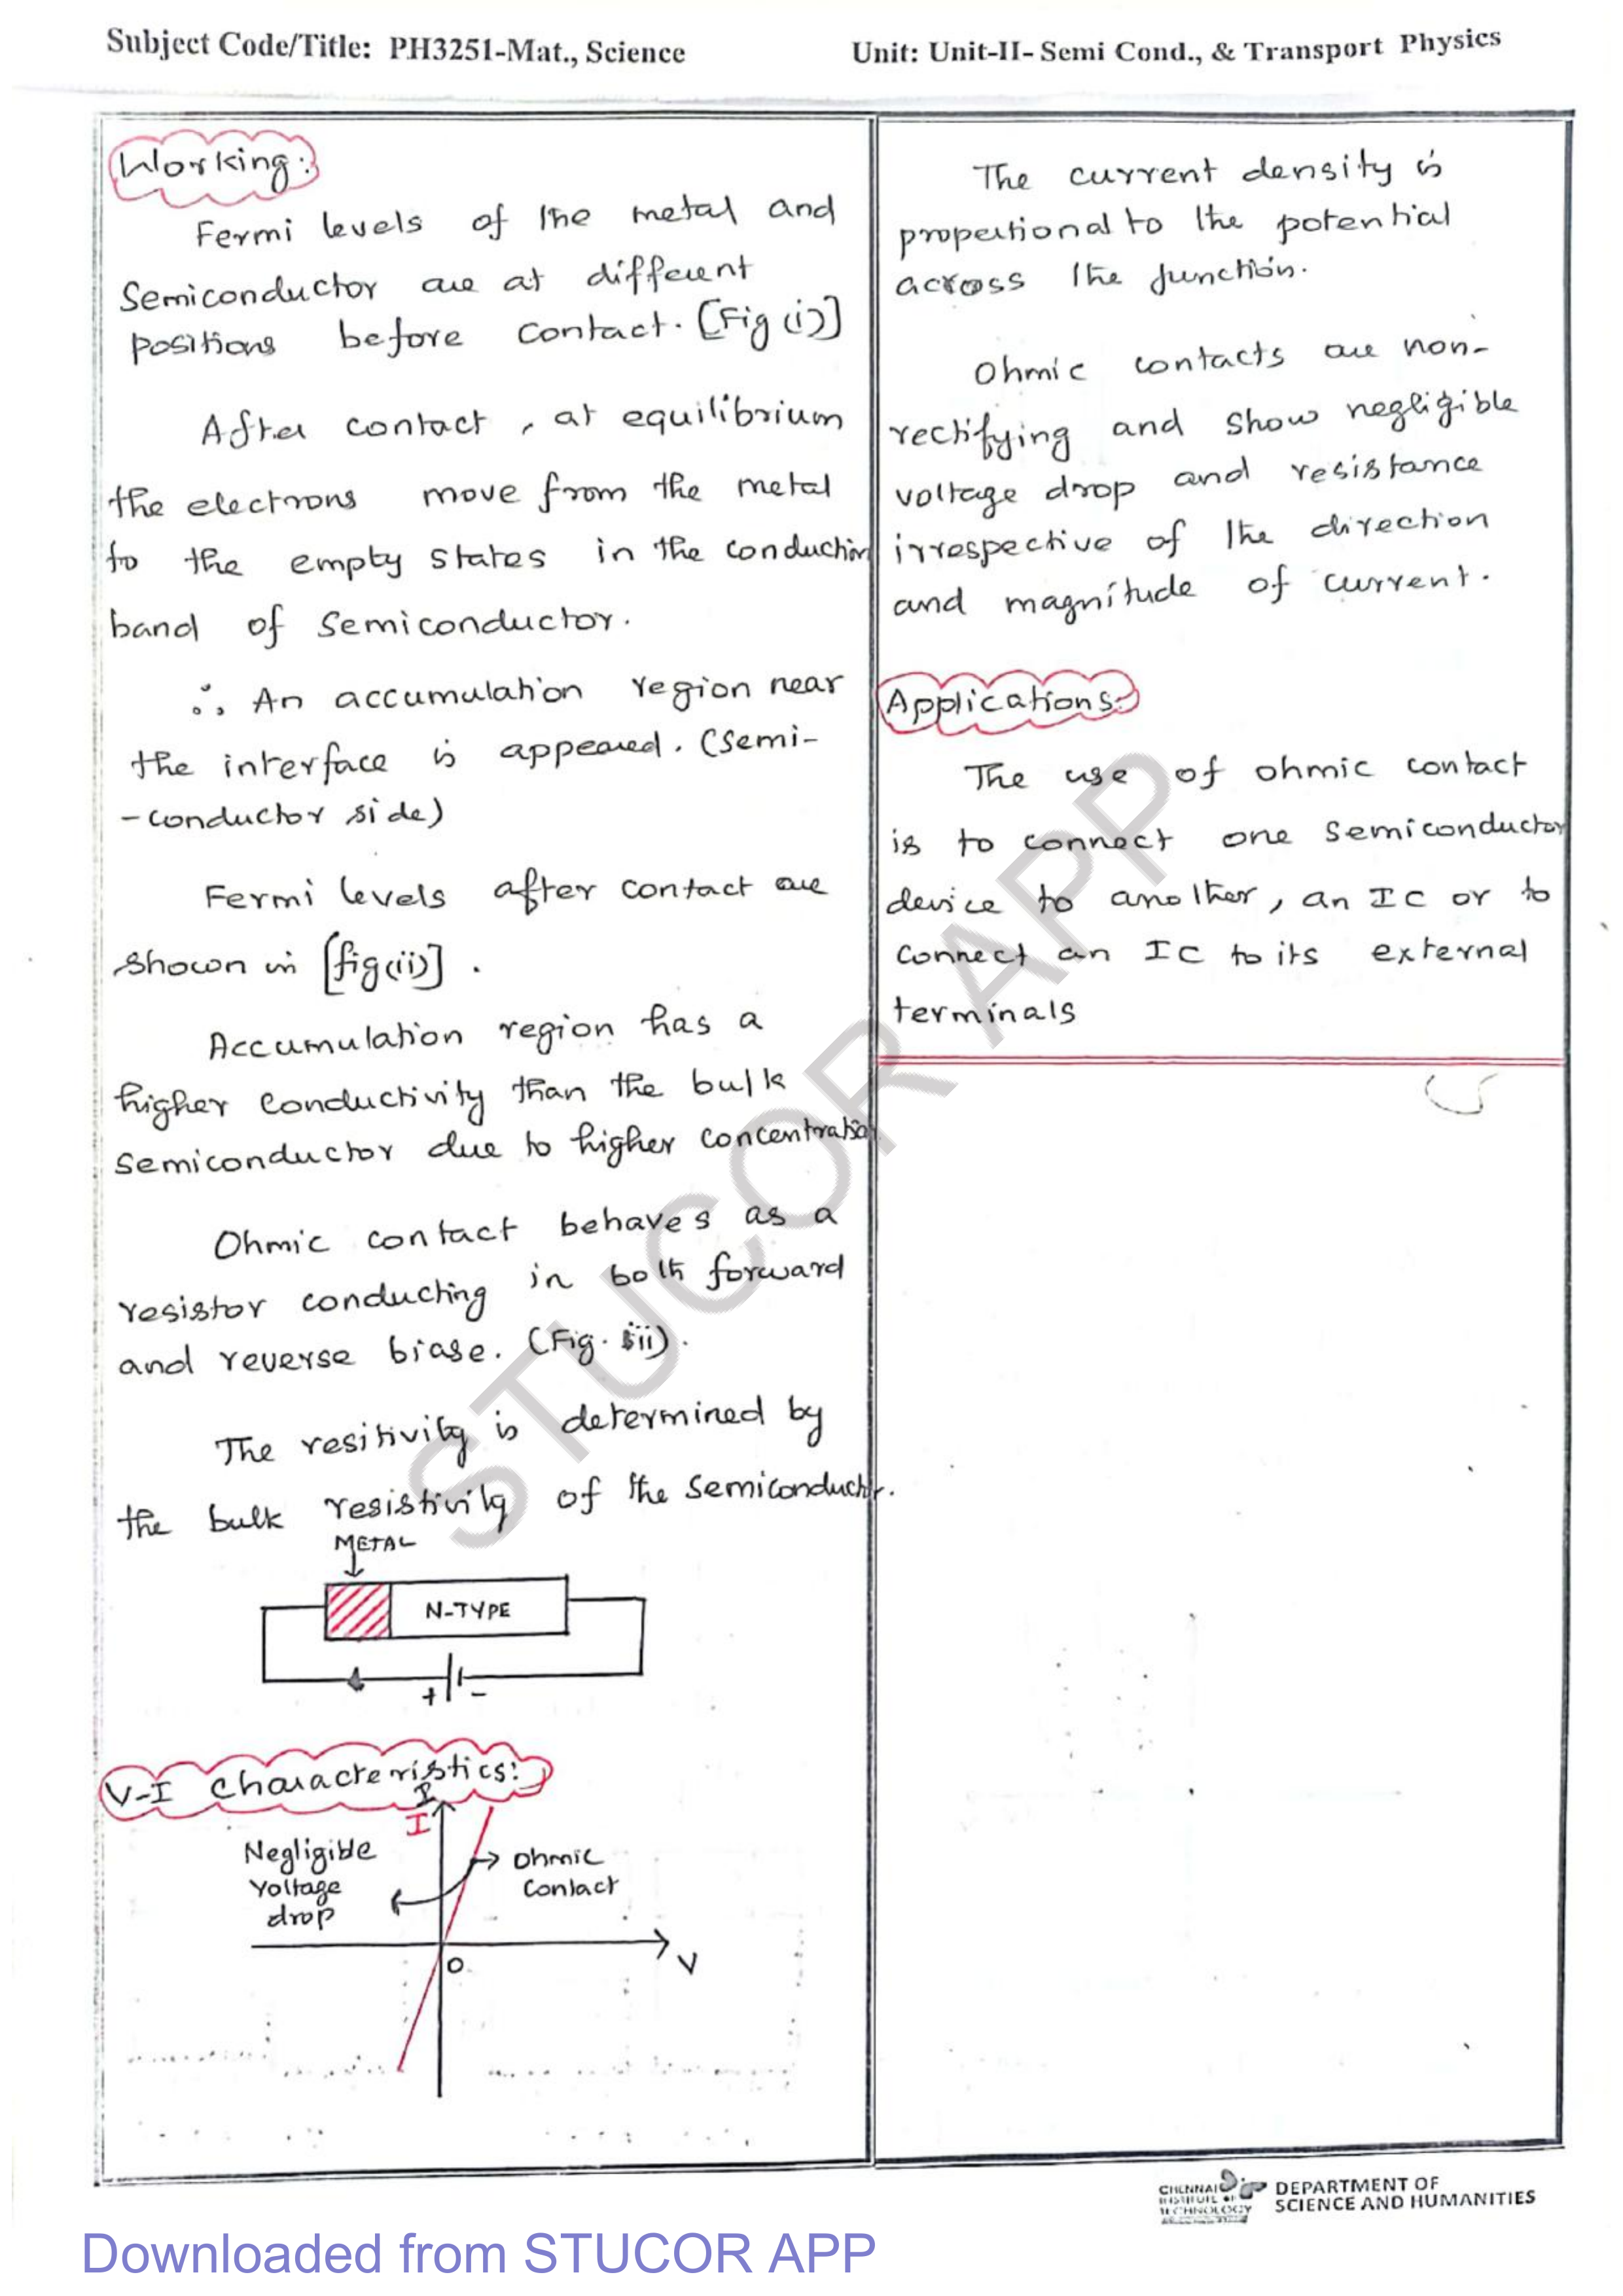 Subject Code/Title: PH3251-Mat., Science
Unit: Unit-II- Semi Cond., & Transport Physics
Working:
Fermi levels of the metal and
Semiconductor are at different
positions before contact. [Fig (i)]
After contact, at equilibrium
the electrons move from the metal
to the empty states in the conduction
band of semiconductor.
∴ An accumulation region near
the interface is appeared. (semi-
-conductor side)
Fermi levels after contact are
shown in [fig(ii)].
Accumulation region has a
higher conductivity than the bulk
semiconductor due to higher concentration
Ohmic contact behaves as a
resistor conducting in both forward
and reverse biase. (Fig. iii).
The resitivity is determined by
the bulk resistivity of the semiconductor.
METAL
N-TYPE
+ -
V-I characteristics:
I
Negligible
voltage
drop
ohmic
contact
O
V
The current density is
propertional to the potential
across the junction.
Ohmic contacts are non-
rectifying and show negligible
voltage drop and resistance
irrespective of the direction
and magnitude of current.
Applications:
The use of ohmic contact
is to connect one semiconductor
device to another, an IC or to
connect an IC to its external
terminals
STUCOR APP
CHENNAI
INSTITUTE OF
TECHNOLOGY
DEPARTMENT OF
SCIENCE AND HUMANITIES
Downloaded from STUCOR APP